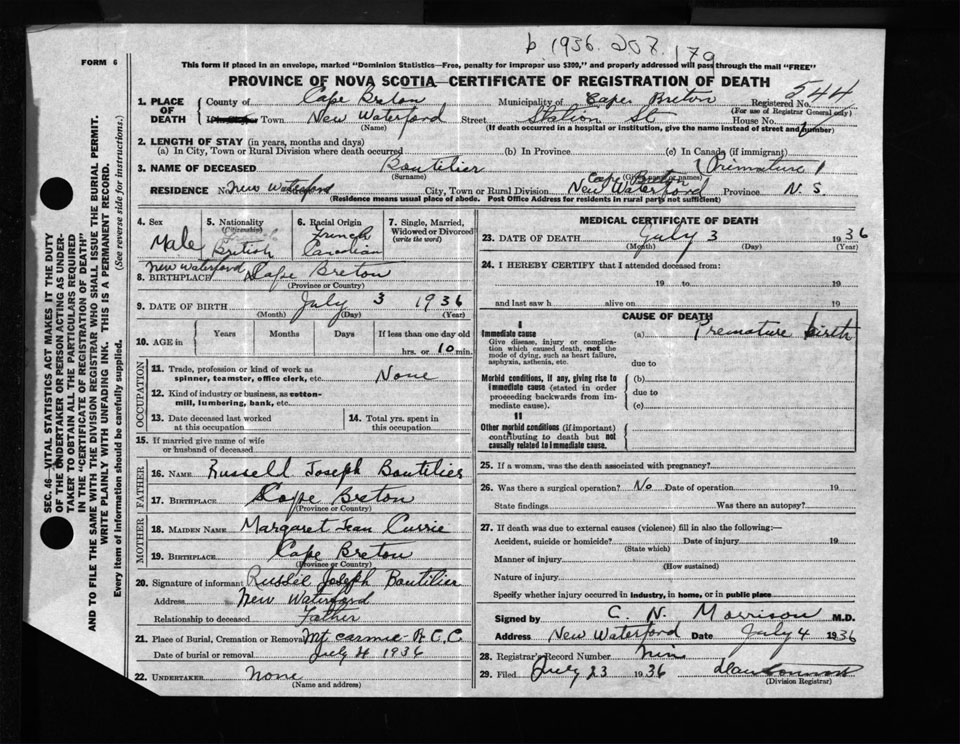 b 1936. 207. 179
FORM 6
This form if placed in an envelope, marked "Dominion Statistics—Free, penalty for improper use $300," and properly addressed will pass through the mail "FREE"
PROVINCE OF NOVA SCOTIA—CERTIFICATE OF REGISTRATION OF DEATH
1. PLACE OF DEATH County of Cape Breton Municipality of Cape Breton Registered No. 544
(For use of Registrar General only)
Town New Waterford Street Station St House No.
(Name) (If death occurred in a hospital or institution, give the name instead of street and number)
2. LENGTH OF STAY (in years, months and days)
(a) In City, Town or Rural Division where death occurred (b) In Province (c) In Canada (if immigrant)
3. NAME OF DECEASED Boutilier (Premature)
(Surname) (Given name or names)
RESIDENCE No. New Waterford City, Town or Rural Division Cape Breton New Waterford Province N. S.
(Residence means usual place of abode. Post Office Address for residents in rural parts not sufficient)
4. Sex Male
5. Nationality (Citizenship) British
6. Racial Origin French Canadian
7. Single, Married, Widowed or Divorced (write the word)
8. BIRTHPLACE New Waterford Cape Breton
(Province or Country)
9. DATE OF BIRTH July 3 1936
(Month) (Day) (Year)
10. AGE in Years Months Days If less than one day old
hrs. or 10 min.
OCCUPATION
11. Trade, profession or kind of work as spinner, teamster, office clerk, etc. None
12. Kind of industry or business, as cotton-mill, lumbering, bank, etc.
13. Date deceased last worked at this occupation
14. Total yrs. spent in this occupation
15. If married give name of wife or husband of deceased
FATHER
16. NAME Russell Joseph Boutilier
17. BIRTHPLACE Cape Breton
(Province or Country)
MOTHER
18. MAIDEN NAME Margaret Jean Currie
19. BIRTHPLACE Cape Breton
(Province or Country)
20. Signature of informant Russel Joseph Boutilier
Address New Waterford
Relationship to deceased Father
21. Place of Burial, Cremation or Removal Mt Carmel R.C.C.
Date of burial or removal July 4 1936
22. UNDERTAKER None
(Name and address)
MEDICAL CERTIFICATE OF DEATH
23. DATE OF DEATH July 3 1936
(Month) (Day) (Year)
24. I HEREBY CERTIFY that I attended deceased from:
19 to 19
and last saw h alive on 19
CAUSE OF DEATH
I
Immediate cause (a) Premature birth
Give disease, injury or complication which caused death, not the mode of dying, such as heart failure, asphyxia, asthenia, etc.
due to
Morbid conditions, if any, giving rise to immediate cause (stated in order proceeding backwards from immediate cause).
(b)
due to
(c)
II
Other morbid conditions (if important) contributing to death but not causally related to immediate cause.
25. If a woman, was the death associated with pregnancy?
26. Was there a surgical operation? No Date of operation 19
State findings Was there an autopsy?
27. If death was due to external causes (violence) fill in also the following:—
Accident, suicide or homicide? Date of injury 19
(State which)
Manner of injury
(How sustained)
Nature of injury
Specify whether injury occurred in industry, in home, or in public place
Signed by C. N. Morrison M.D.
Address New Waterford Date July 4 1936
28. Registrar's Record Number
29. Filed July 23 1936
(Division Registrar)
SEC. 46—VITAL STATISTICS ACT MAKES IT THE DUTY
OF THE UNDERTAKER OR PERSON ACTING AS UNDER-
TAKER TO OBTAIN ALL THE PARTICULARS REQUIRED
IN THE "CERTIFICATE OF REGISTRATION OF DEATH"
AND TO FILE THE SAME WITH THE DIVISION REGISTRAR WHO SHALL ISSUE THE BURIAL PERMIT.
WRITE PLAINLY WITH UNFADING INK. THIS IS A PERMANENT RECORD.
Every item of information should be carefully supplied. (See reverse side for instructions.)